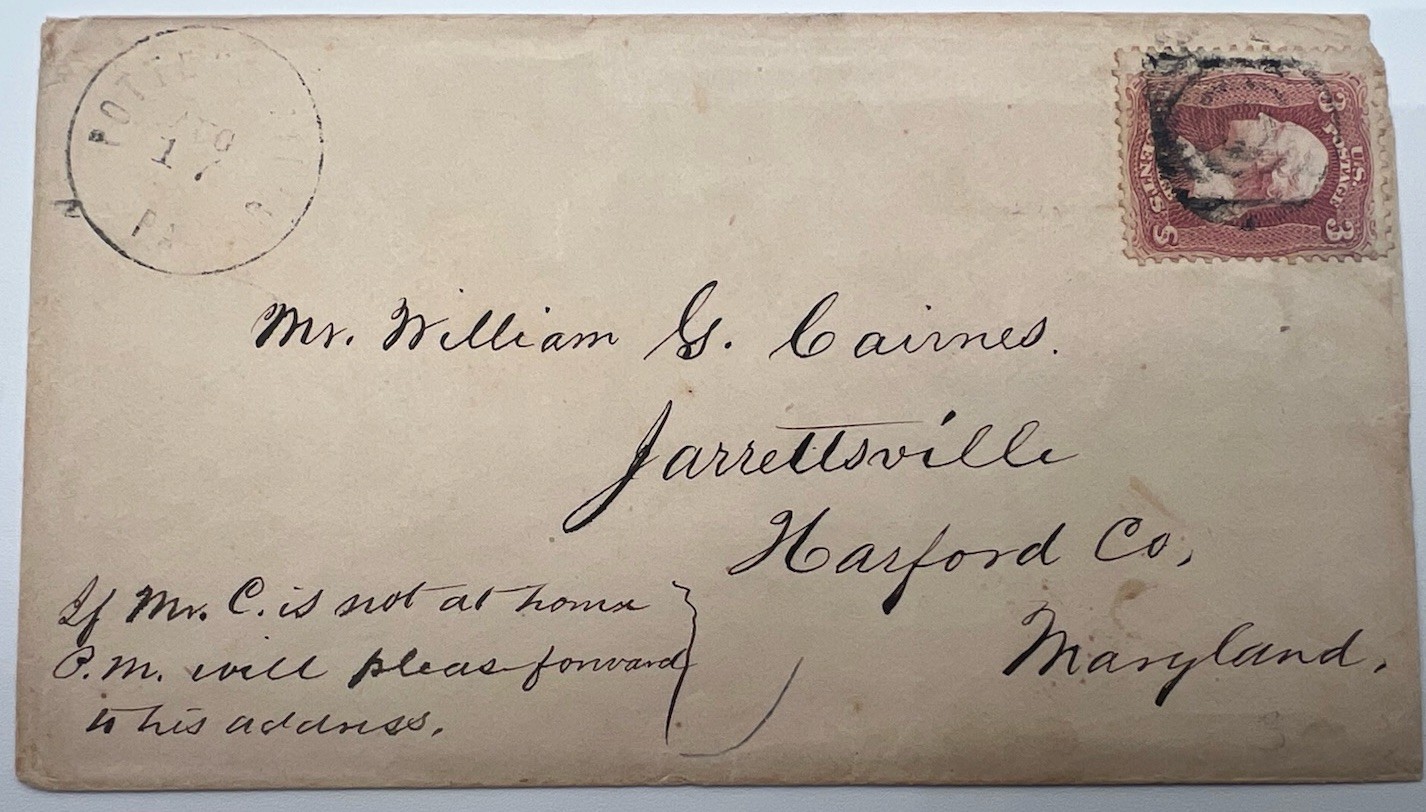 AUG
17
PA
U.S. POSTAGE
3 3
CENTS
Mr. William G. Cairnes.
Jarrettsville
Harford Co.
Maryland.
If Mr. C. is not at home
P.M. will pleas forward
to his address.